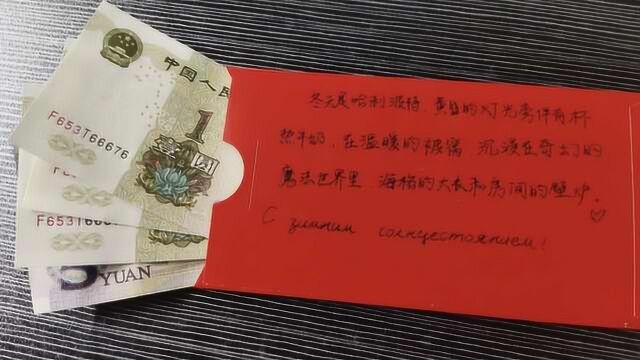 中国人民
F653T66676
1
壹圆
F653T6667
F653T666
YUAN
冬天是哈利波特,黄昏的灯光旁伴有杯
热牛奶,在温暖的被窝 沉浸在奇幻的
魔法世界里.海格的大衣和房间的壁炉.
С зимним солнцестоянием!